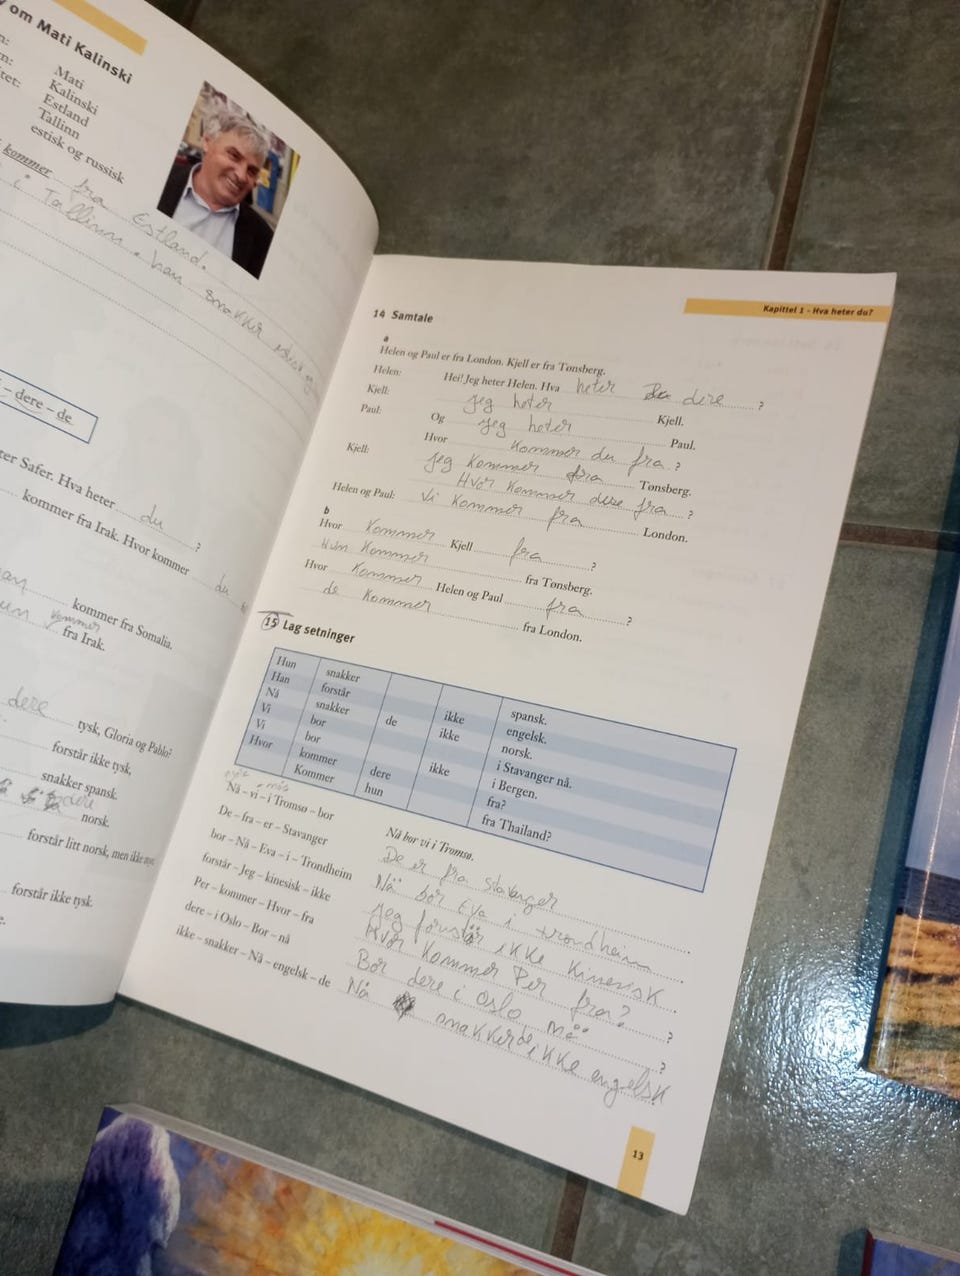 om Mati Kalinski
Mati
Kalinski
Estland
Tallinn
estisk og russisk
kommer fra Estland.
i Tallinn. han snakker
– dere – de
ter Safer. Hva heter du ?
kommer fra Irak. Hvor kommer du
kommer fra Somalia.
kommer
fra Irak.
dere tysk, Gloria og Pablo?
forstår ikke tysk,
snakker spansk.
dere norsk.
forstår litt norsk, men ikke mye.
forstår ikke tysk.
Kapittel 1 - Hva heter du?
14 Samtale
a
Helen og Paul er fra London. Kjell er fra Tønsberg.
Helen: Hei! Jeg heter Helen. Hva heter dere ?
Kjell: jeg heter Kjell.
Paul: Og jeg heter Paul.
Hvor kommer du fra ?
Kjell: jeg kommer fra Tønsberg.
Hvor kommer dere fra ?
Helen og Paul: Vi kommer fra London.
b
Hvor kommer Kjell fra ?
Hun kommer fra Tønsberg.
Hvor kommer Helen og Paul fra ?
de kommer fra London.
15 Lag setninger
Hun snakker spansk.
Han forstår ikke engelsk.
Nå snakker de ikke norsk.
Vi bor i Stavanger nå.
Vi bor ikke i Bergen.
Hvor kommer dere fra?
Kommer hun fra Thailand?
Nå – vi – i Tromsø – bor Nå bor vi i Tromsø.
De – fra – er – Stavanger De er fra stavanger
bor – Nå – Eva – i – Trondheim Nå bor Eva i trondheim
forstår – Jeg – kinesisk – ikke jeg forstår ikke kinesisk
Per – kommer – Hvor – fra Hvor kommer Per fra? ?
dere – i Oslo – Bor – nå Bor dere i oslo nå ?
ikke – snakker – Nå – engelsk – de Nå snakker de ikke engelsk
13